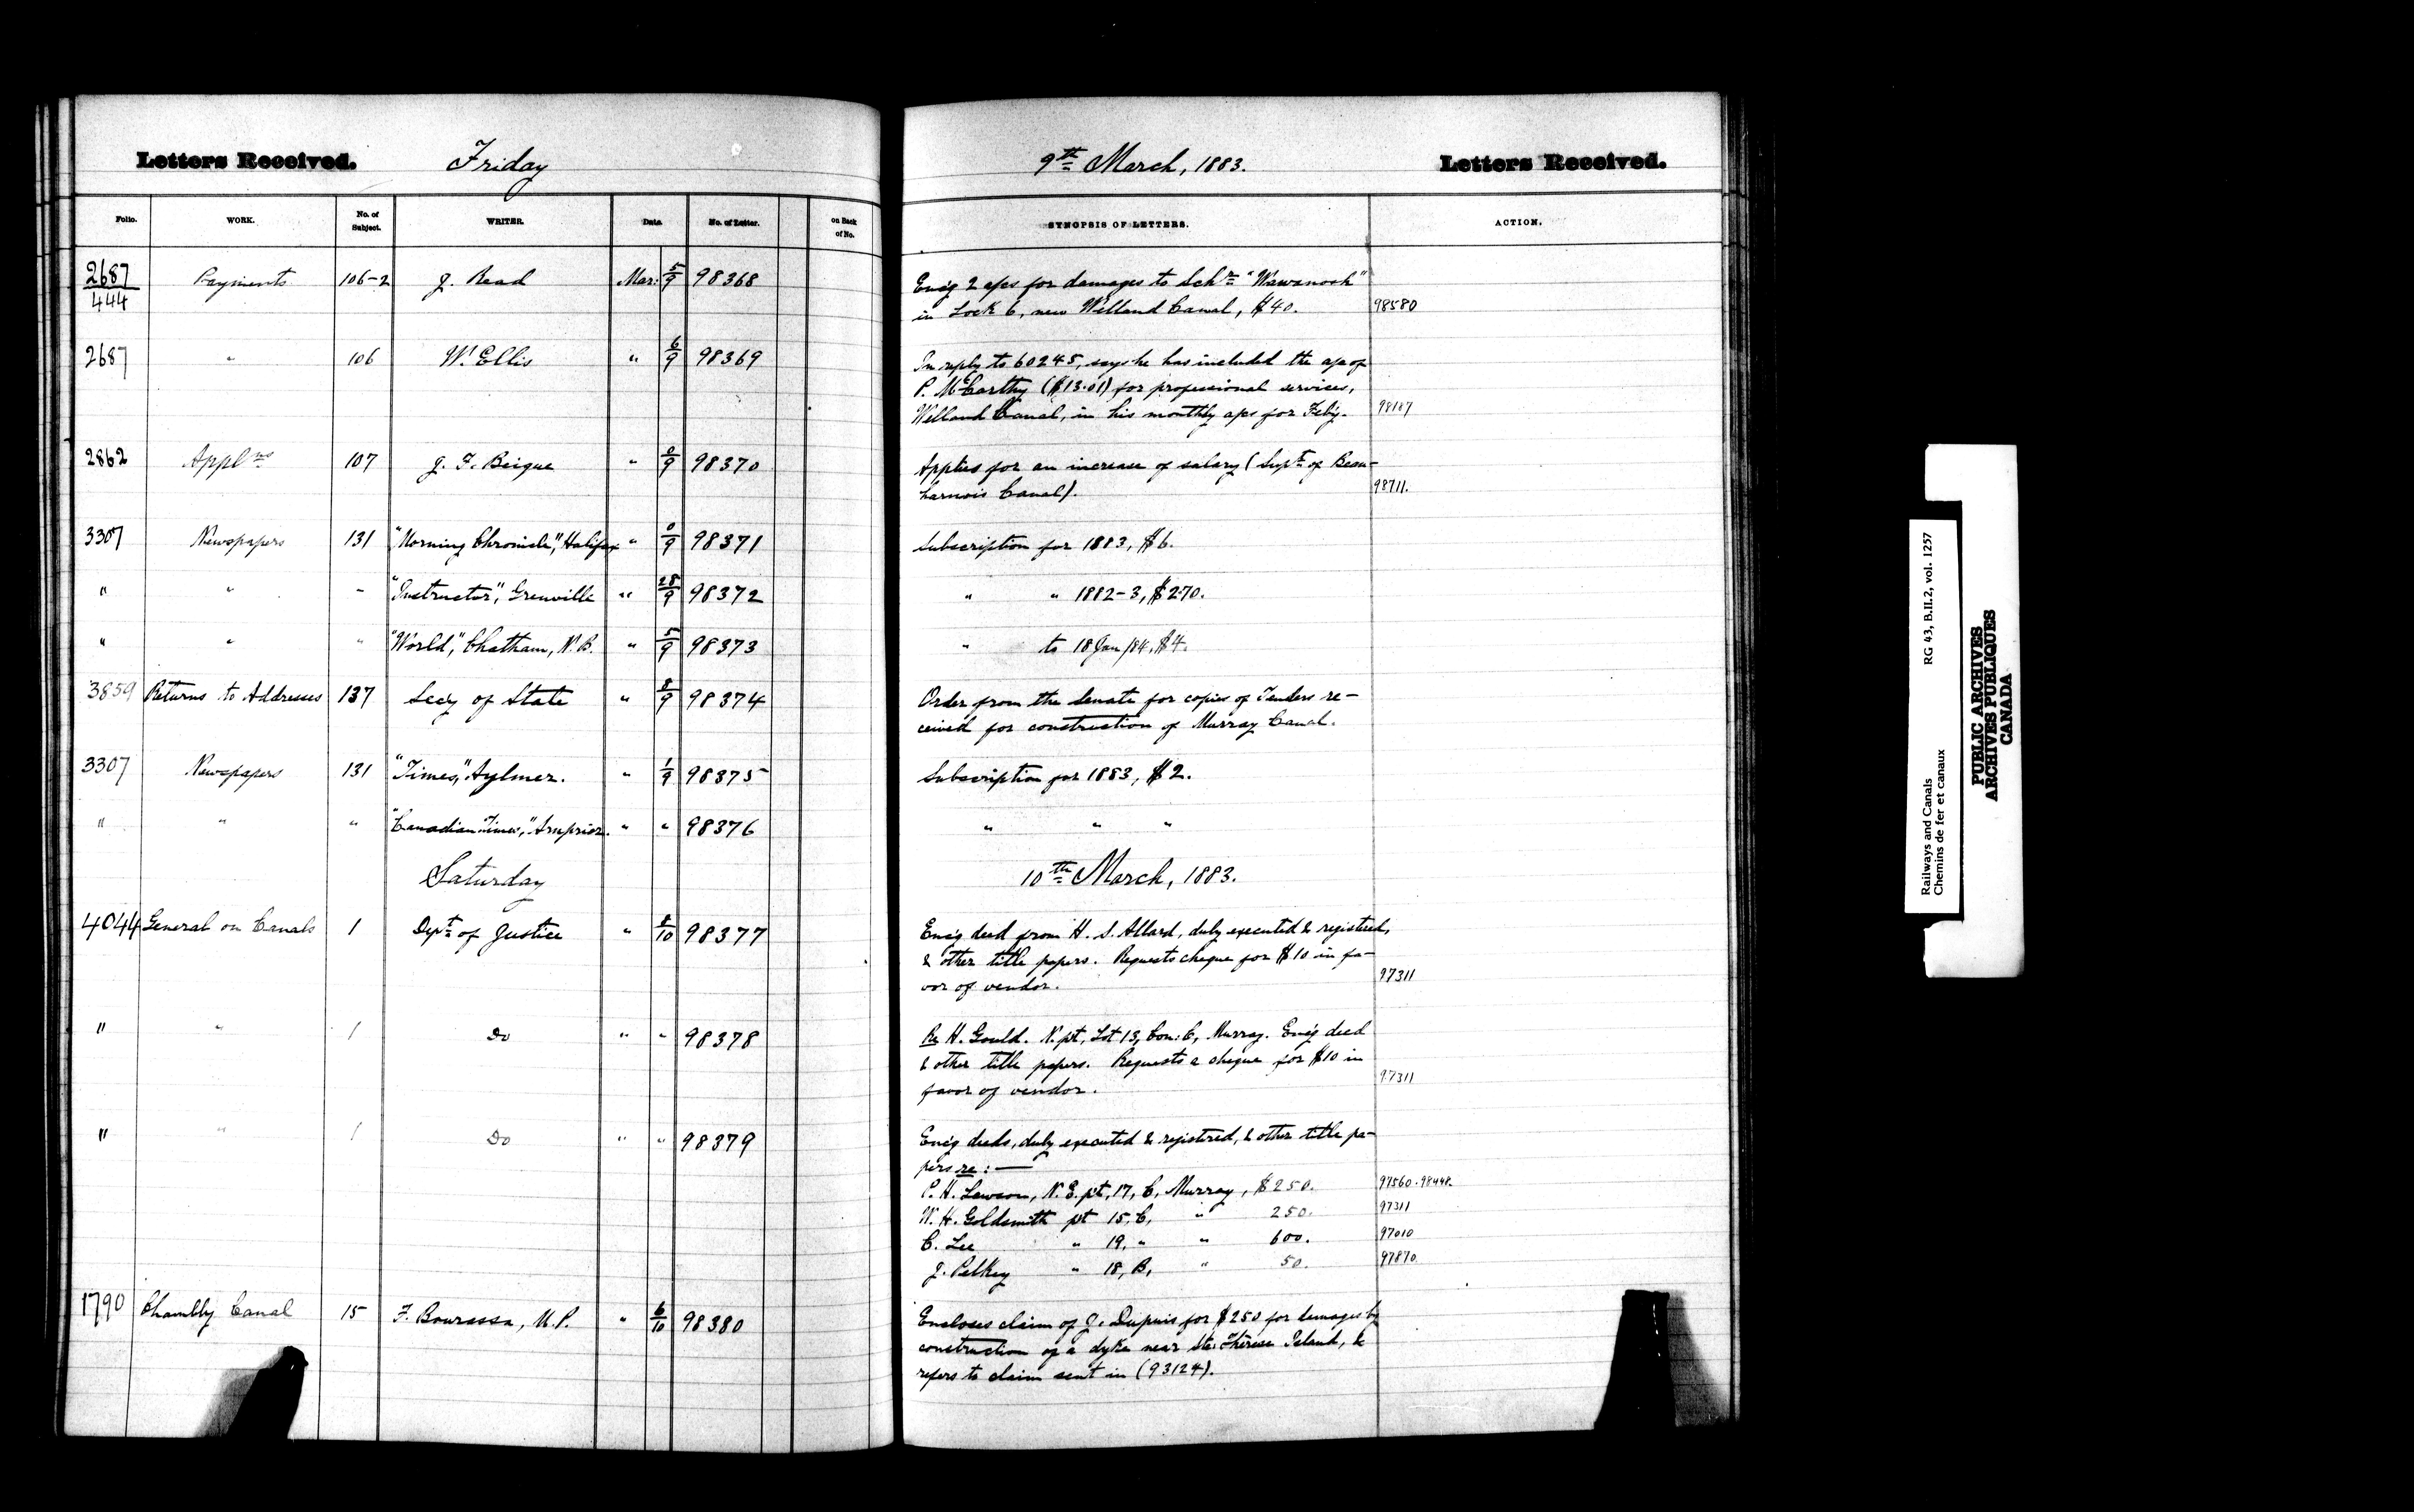 Letters Received. Friday 9th March, 1883. Letters Received.
Folio. WORK. No. of Subject. WRITER. Date. No. of Letter. on Back of No. SYNOPSIS OF LETTERS. ACTION.
2687/444 Payments 106-2 J. Read Mar: 5/9 98368 Enc'g 2 a/cs for damages to Schr "Wawanosh"
in Lock 6, new Welland Canal, $40. 98580
2687 " 106 W. Ellis " 6/9 98369 In reply to 60245, says he has included the a/c of
P. McCarthy ($13.01) for professional services,
Welland Canal, in his monthly a/cs for Feb'y. 98187
2862 Applns 107 J. F. Beique " 0/9 98370 Applies for an increase of salary (Supt of Beau-
harnois Canal). 98711.
3307 Newspapers 131 "Morning Chronicle", Halifax " 0/9 98371 Subscription for 1883, $6.
" " " "Instructor", Grenville " 28/9 98372 " " 1882-3, $2.70.
" " " "World", Chatham, N.B. " 5/9 98373 " to 18 Jan/84, $4.
3859 Returns to Addresses 137 Secy of State " 8/9 98374 Order from the Senate for copies of Tenders re-
ceived for construction of Murray Canal.
3307 Newspapers 131 "Times," Aylmer. " 1/9 98375 Subscription for 1883, $2.
" " " "Canadian Times," Arnprior. " " 98376 " " "
Saturday 10th March, 1883.
4044 General on Canals 1 Dept of Justice " 8/10 98377 Enc'g deed from H. S. Allard, duly executed & registered,
& other title papers. Requests cheque for $10 in fa-
vor of vendor. 97311
" " 1 Do " " 98378 Re H. Gould. N. pt, Lot 13, Con: C, Murray. Enc'g deed
& other title papers. Requests a cheque for $10 in
favor of vendor. 97311
" " 1 Do " " 98379 Enc'g deeds, duly executed & registered, & other title pa-
pers re: —
P. H. Lawson, N. E. pt, 17, C, Murray, $250. 97560. 98448.
W. H. Goldsmith pt 15, C, " 250. 97311
C. Lee " 19, " " 600. 97010
J. Pelkey " 18, B, " 50. 97870
1790 Chambly Canal 15 F. Bourassa, M.P. " 6/10 98380 Encloses claim of J. Dupuis for $250 for damages by
construction of a dyke near Ste. Thérèse Island, &
refers to claim sent in (93124).
Railways and Canals RG 43, B.II.2, vol. 1257
Chemins de fer et canaux
PUBLIC ARCHIVES
ARCHIVES PUBLIQUES
CANADA